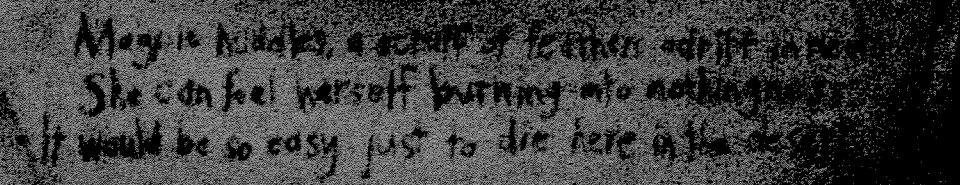 Magpie huddles, a scruff of feathers adrift in
She can feel herself burning into nothingness
It would be so easy just to die here in the desert